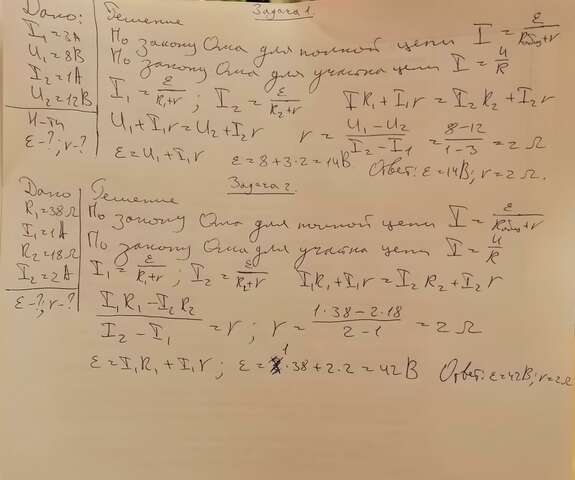 Задача 1.
Дано:
I₁ = 3A
U₁ = 8В
I₂ = 1A
U₂ = 12В
Н-ти
ε-?; r-?
Решение
По закону Ома для полной цепи I = ε/(Rобщ+r)
По закону Ома для участка цепи I = U/R
I₁ = ε/(R₁+r) ; I₂ = ε/(R₂+r) IR₁ + I₁r = I₂R₂ + I₂r
U₁ + I₁r = U₂ + I₂r r = (U₁ - U₂)/(I₂ - I₁) = (8-12)/(1-3) = 2 Ω
ε = U₁ + I₁r ε = 8 + 3·2 = 14В Ответ: ε = 14В; r = 2 Ω.
Задача 2.
Дано
R₁ = 38 Ω
I₁ = 1A
R₂ = 18 Ω
I₂ = 2A
ε-?; r-?
Решение
По закону Ома для полной цепи I = ε/(Rобщ+r)
По закону Ома для участка цепи I = U/R
I₁ = ε/(R₁+r) ; I₂ = ε/(R₂+r) I₁R₁ + I₁r = I₂R₂ + I₂r
(I₁R₁ - I₂R₂)/(I₂ - I₁) = r ; r = (1·38 - 2·18)/(2-1) = 2 Ω
ε = I₁R₁ + I₁r ; ε = 1·38 + 2·2 = 42В Ответ: ε = 42В; r = 2Ω